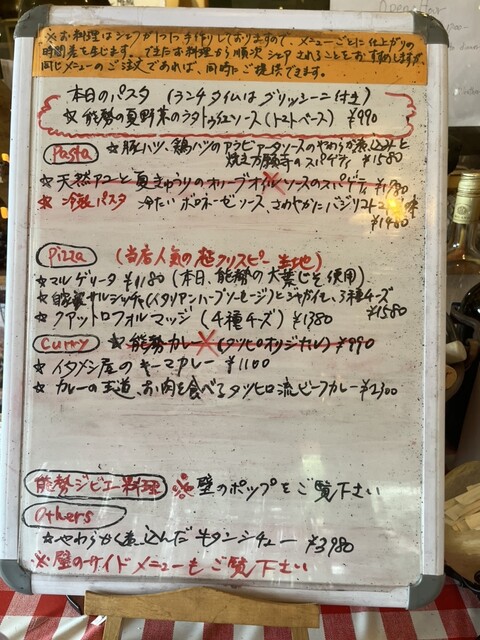 ※お料理はシェフが1つ1つ手作りしておりますので、メニューごとに仕上がりの
時間差を生じます。できたお料理から順次シェアされることをおすすめしますが、
同じメニューのご注文であれば、同時にご提供できます。
本日のパスタ (ランチタイムはグリッシーニ付き)
☆ 能勢の夏野菜のラタトゥイユソース(トマトベース) ¥990
Pasta ☆豚ハツ、鶏ハツのアラビアータソースのやわらか煮込みと
焼き万願寺のスパゲティ ¥1580
☆天然アコと夏きゅうりのオリーブオイルソースのスパゲティ
☆冷製パスタ 冷たいボロネーゼソース、さわやかにバジリコ
¥1480
Pizza (当店人気の極クリスピー生地)
☆マルゲリータ ¥1180 (本日、能勢の大葉じそ使用)
☆自家製サルシッチャ(イタリアンハーブソーセージ)とジャガイモ、3種チーズ
¥1580
☆クアットロフォルマッジ (4種チーズ) ¥1380
Curry ☆能勢カレー(タツヒロオリジナル) ¥990
☆イタメシ屋のキーマカレー ¥1100
☆カレーの王道、お肉を食べるタツヒロ流ビーフカレー ¥2300
能勢ジビエ料理 ※壁のポップをご覧下さい
Others
☆やわらかく煮込んだ牛タンシチュー ¥3980
※壁のサイドメニューもご覧下さい